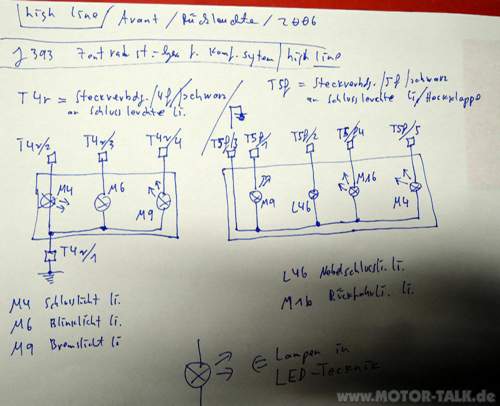 high line / Avant / Rückleuchte / 2006
J 393 Zentralst. gerä f. Komf. system / high line
T4r = Steckverbdg. /4f/ schwarz
an Schlussleuchte li.
T5p = Steckverbdg. /5f/ schwarz
an Schlussleuchte li / Heckklappe
T4r/2 T4r/3 T4r/4
T5p/3 T5p/1 T5p/2 T5p/4 T5p/5
M4 M6 M9
M9 L46 M16 M4
T4r/1
L46 Nebelschlussli. li.
M16 Rückfahrli. li.
M4 Schlusslicht li.
M6 Blinklicht li.
M9 Bremslicht li
Lampen in
LED-Technik
www.MOTOR-TALK.de